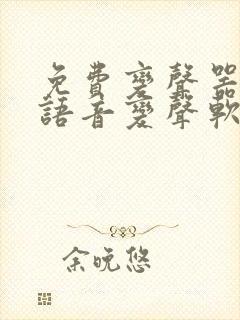 免費變聲器
語音變聲軟
余晚悠